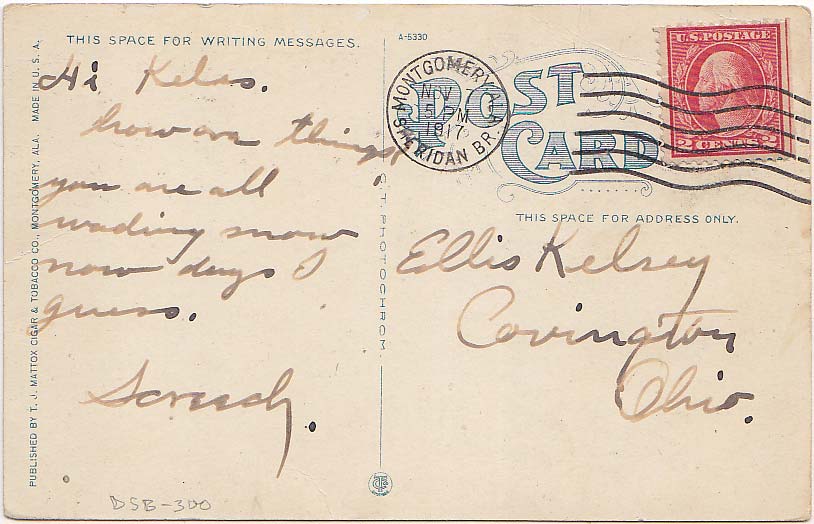 THIS SPACE FOR WRITING MESSAGES.
Hi Kelas.
how are things,
you are all
wading snow
now days I
guess.
Screech.
PUBLISHED BY T. J. MATTOX CIGAR & TOBACCO CO., MONTGOMERY, ALA. MADE IN U. S. A.
C T PHOTOCHROM
A-5330
POST CARD
MONTGOMERY, ALA.
NOV 7
5 PM
1917
SHERIDAN BR.
U.S. POSTAGE
2 CENTS 2
THIS SPACE FOR ADDRESS ONLY.
Ellis Kelsey
Covington
Ohio.
DSB-300